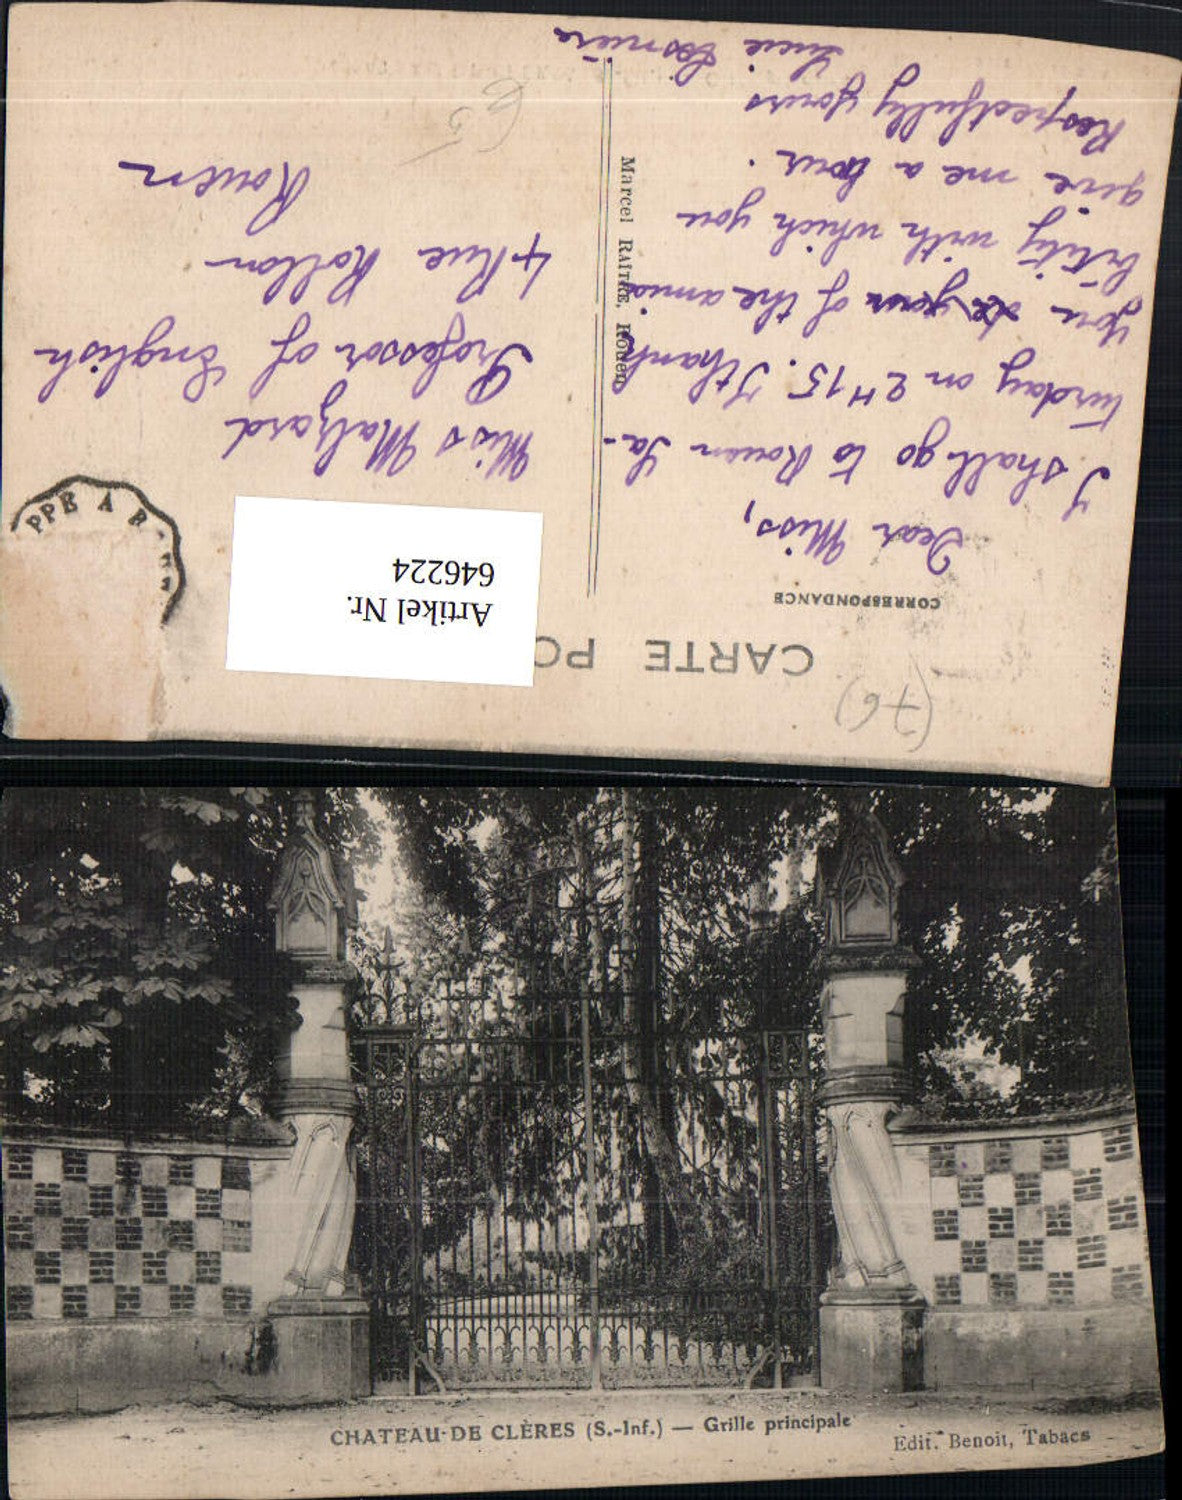 (76)
CARTE PO
CORRESPONDANCE
Dear Miss,
I shall go to Rouen Sa-
turday on 2H15. I thank
you of the ama
bility with which you
give me a hour.
Respectfully yours
Lucie
Marcel RAÎTRE, Rouen
Artikel Nr.
646224
PPE A R
Miss Malzard
Professor of English
4 Rue Rollon
Rouen
CHATEAU DE CLÈRES (S.-Inf.) — Grille principale
Edit. Benoit, Tabacs